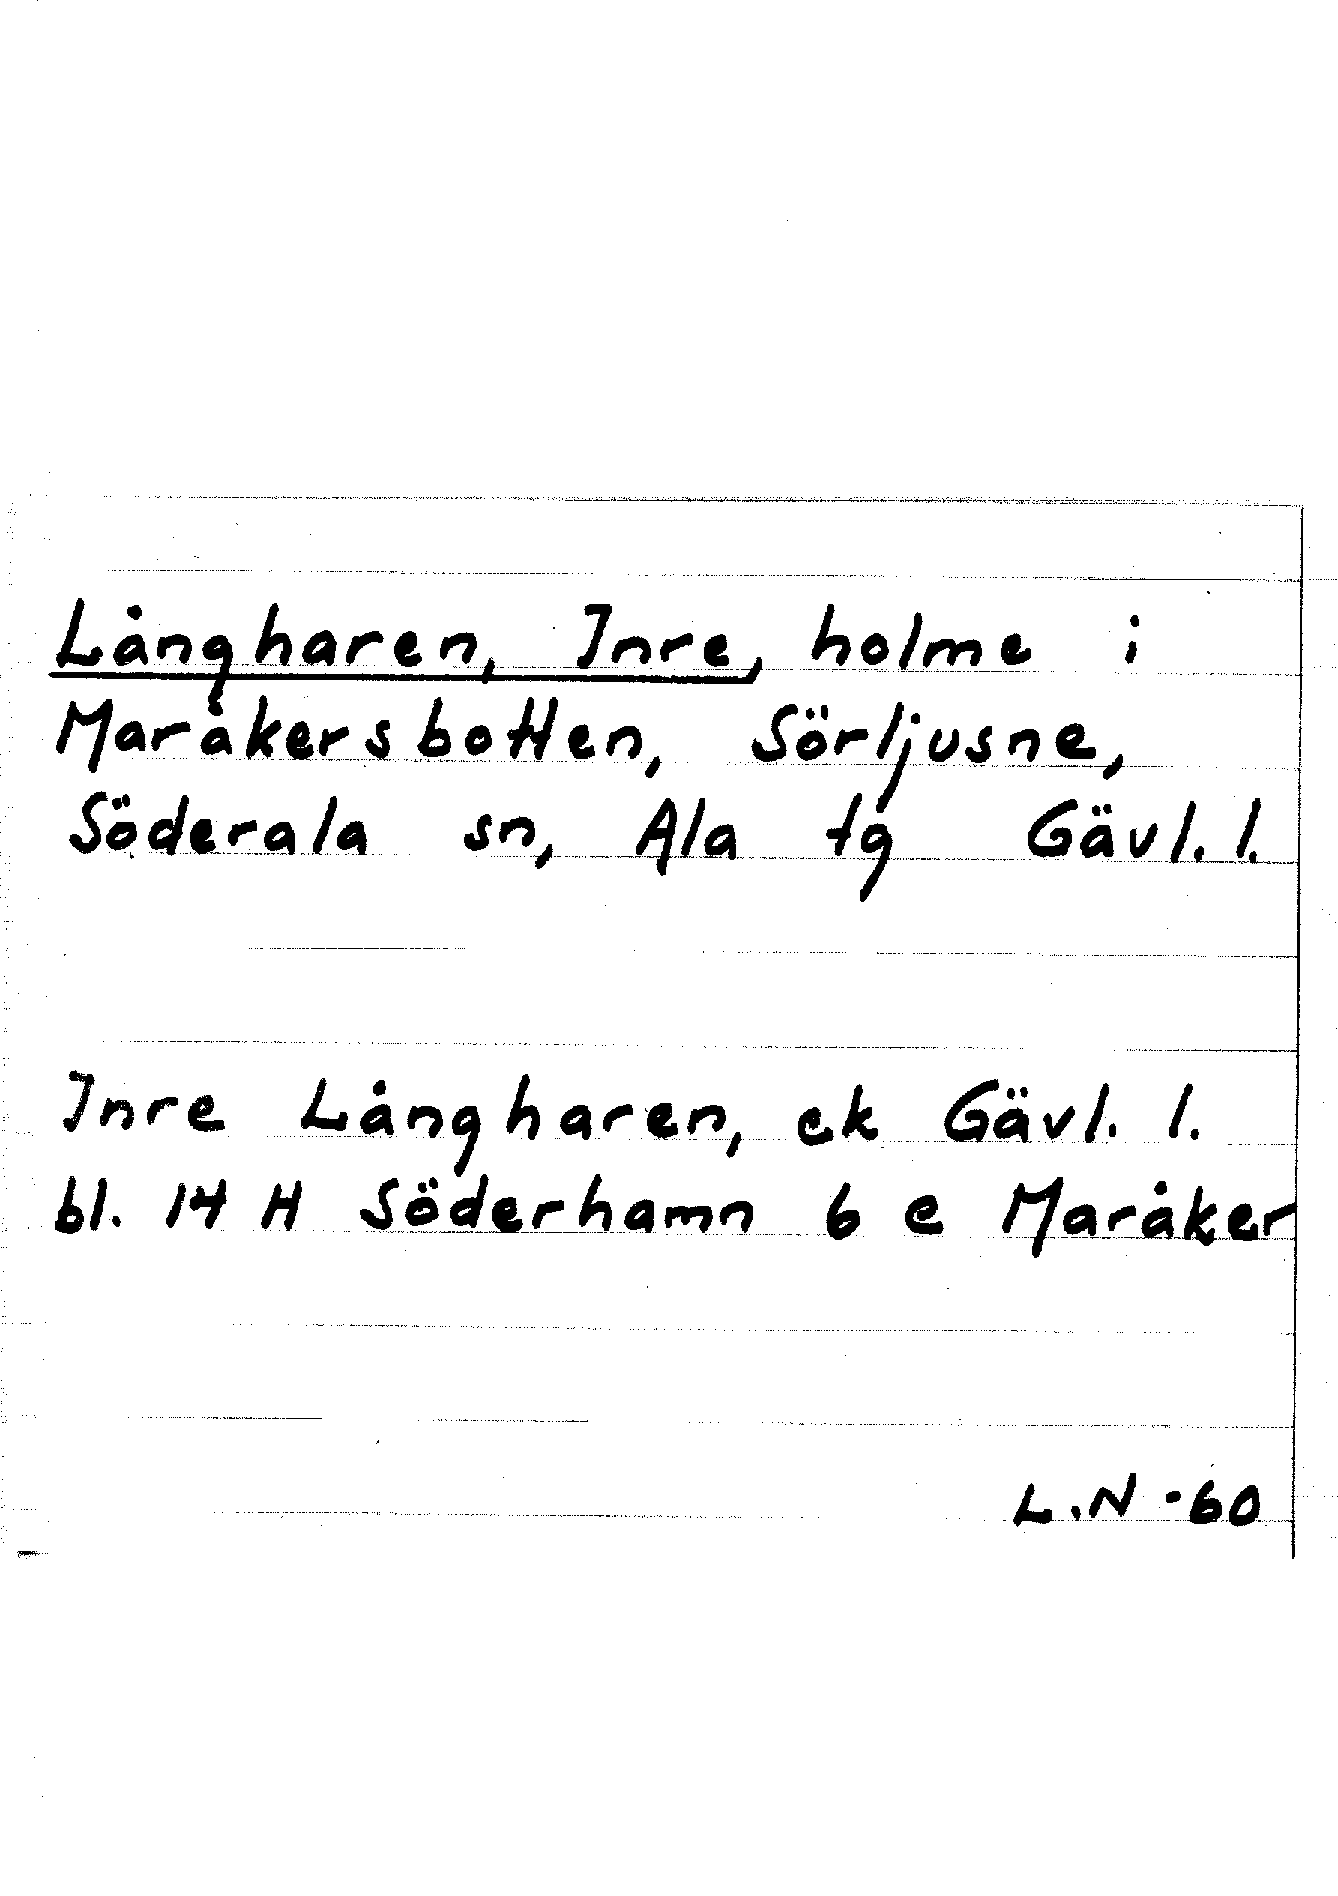 Långharen, Inre, holme i
Maråkersbotten, Sörljusne,
Söderala sn, Ala tg Gävl. l.
Inre Långharen, ek Gävl. l.
bl. 14 H Söderhamn 6 e Maråker
L.N -60